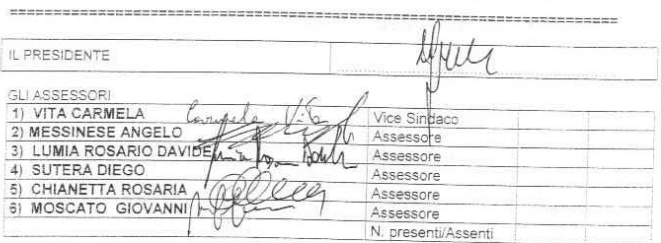 IL PRESIDENTE
GLI ASSESSORI
1) VITA CARMELA Carmela Vita Vice Sindaco
2) MESSINESE ANGELO Assessore
3) LUMIA ROSARIO DAVIDE Assessore
4) SUTERA DIEGO Assessore
5) CHIANETTA ROSARIA Assessore
6) MOSCATO GIOVANNI Assessore
N. presenti/Assenti